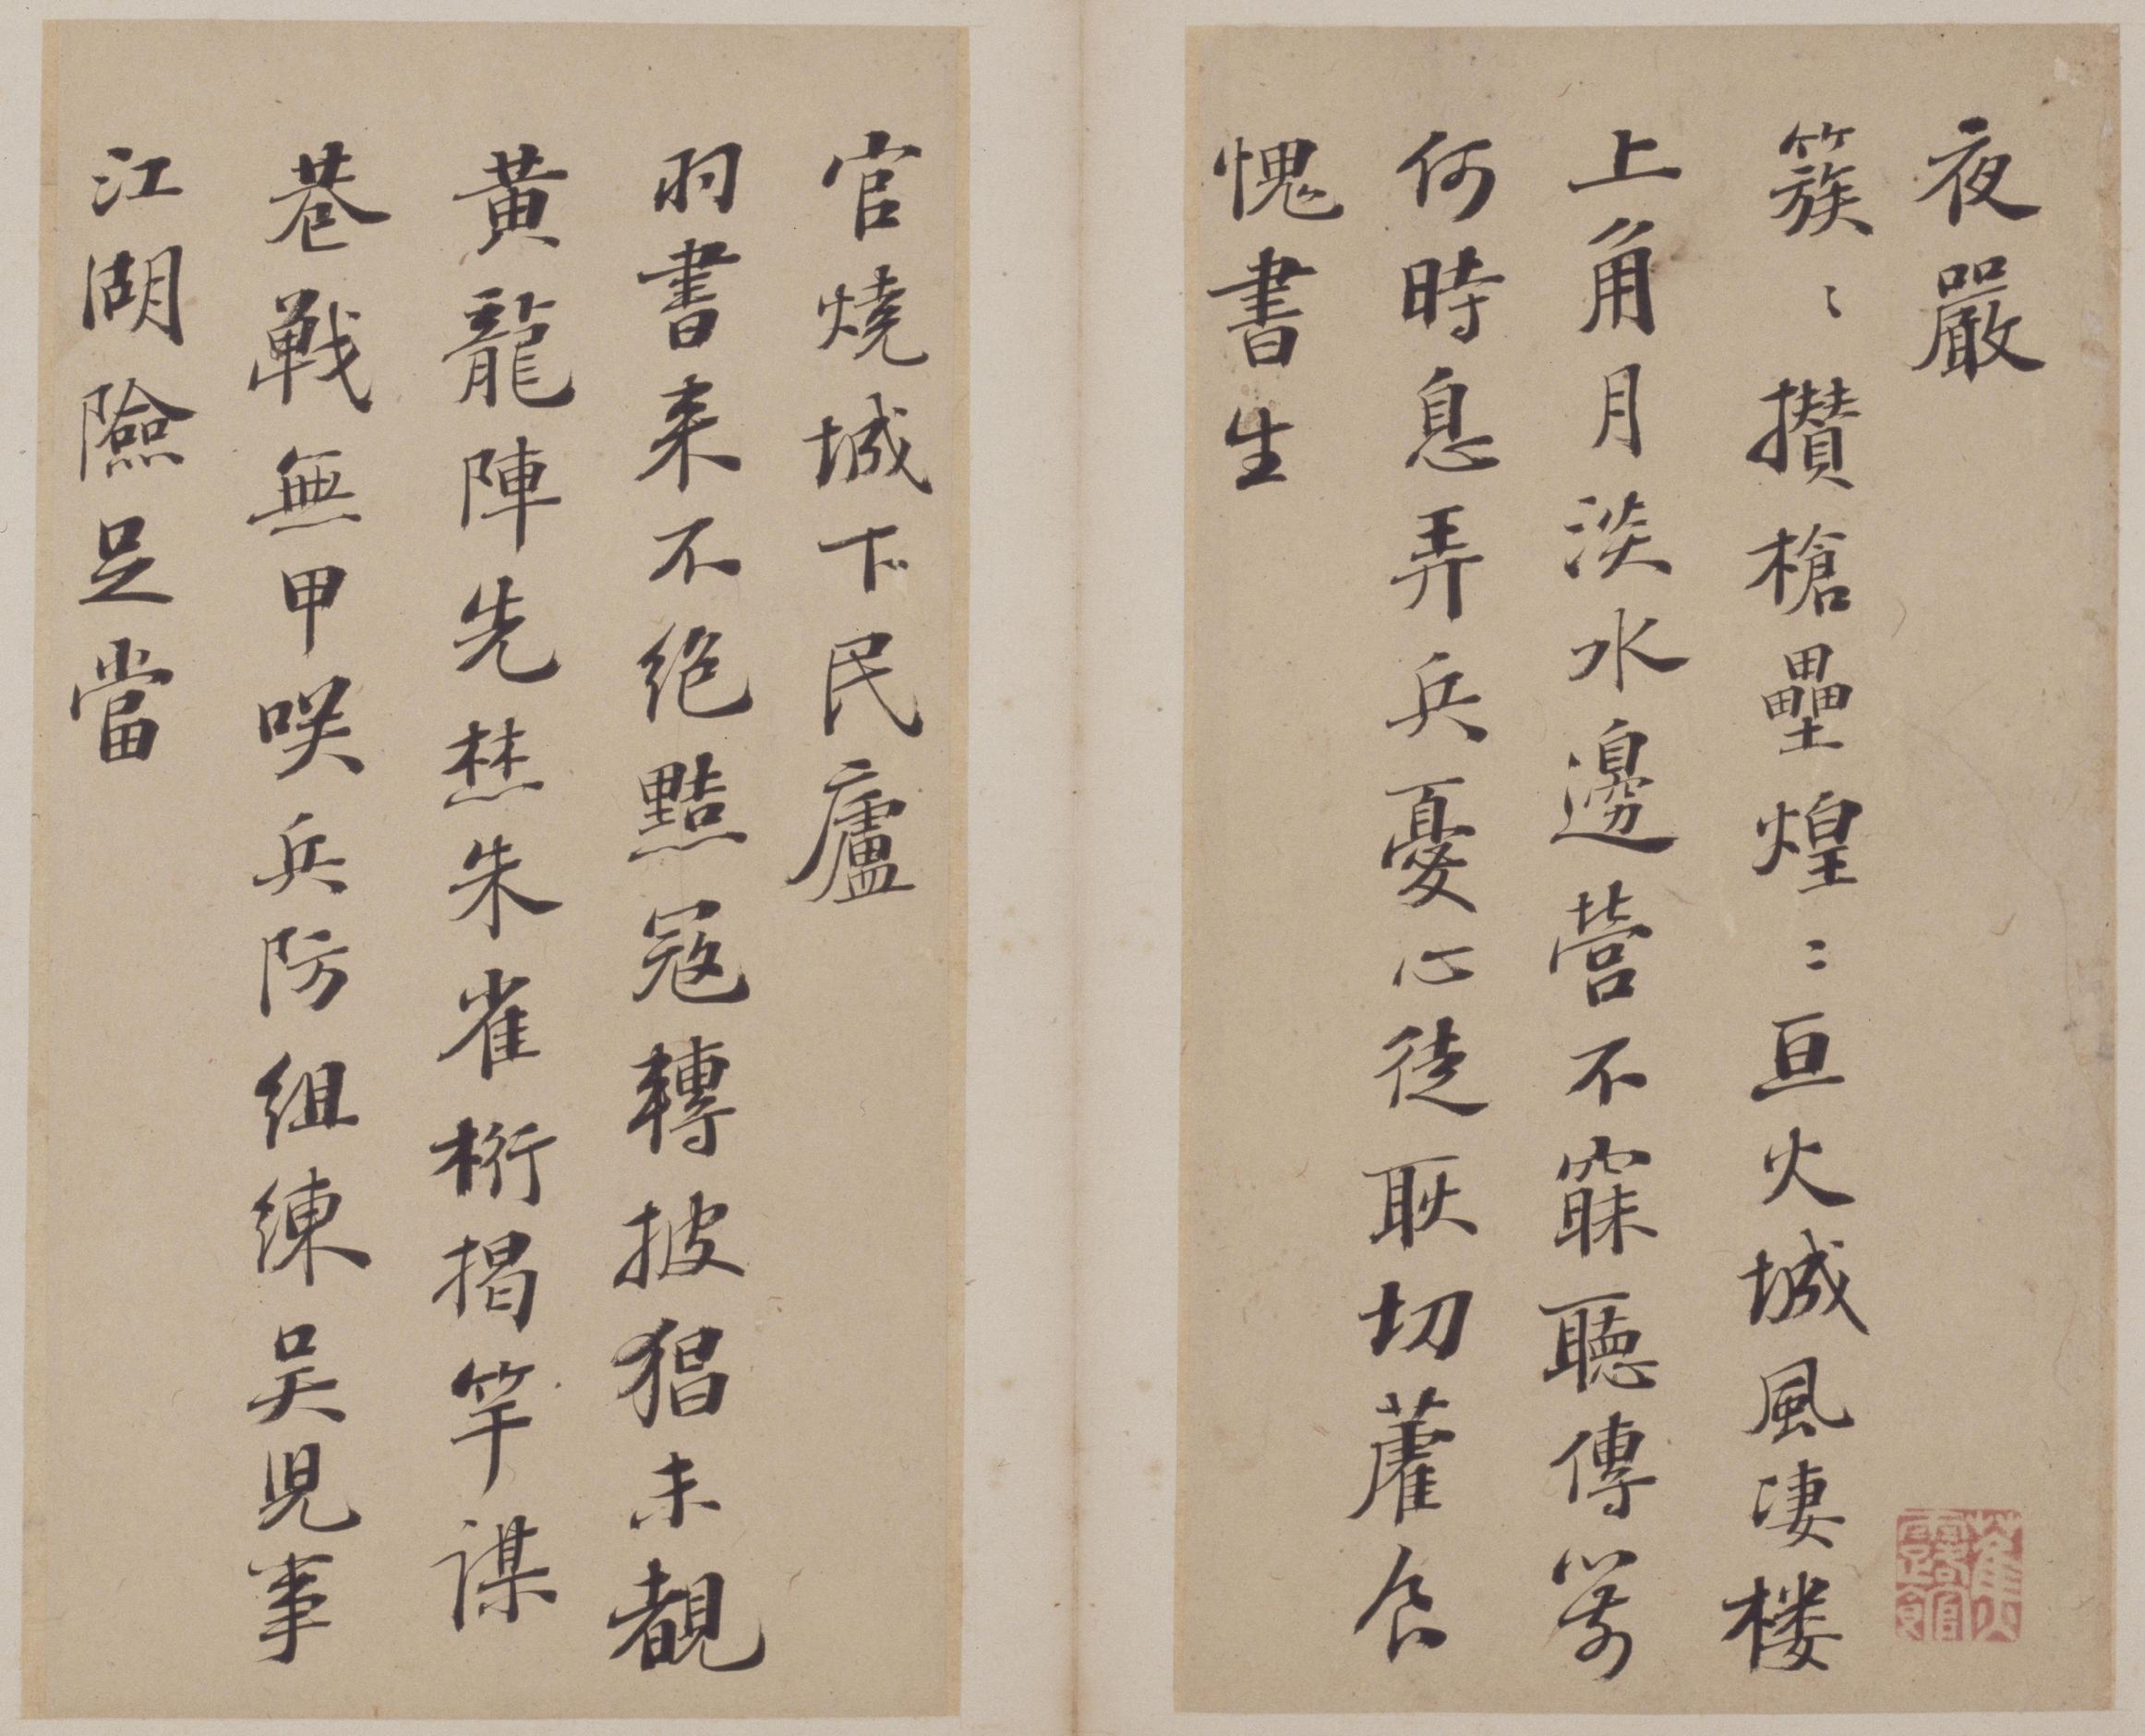 夜嚴
簇〻攅槍壘煌〻亘火城風凄楼
上角月淡水邊營不寐聽傳箭
何時息弄兵憂心徒耿切藿食
愧書生
官燒城下民廬
羽書来不絶黠寇轉披猖未覩
黃龍陣先焚朱雀桁揭竿謀
巷戰無甲咲兵防組練吳児事
江湖險足當